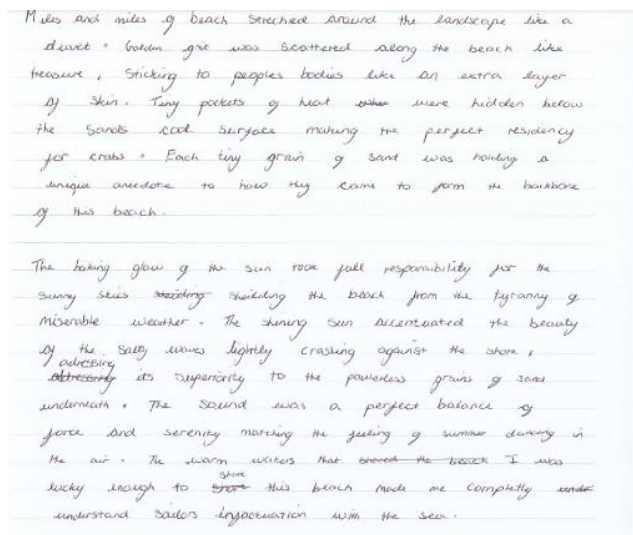 Miles and miles of beach streched around the landscape like a
duvet. Golden grit was scattered along the beach like
treasure, sticking to peoples bodies like an extra layer
of skin. Tiny pockets of heat were hidden below
the sands cool surface making the perfect residency
for crabs. Each tiny grain of sand was holding a
unique anecdote to how they came to form the backbone
of this beach.
The baking glow of the sun took full responsibility for the
sunny skies shielding the beach from the tyranny of
miserable weather. The shining sun accentuated the beauty
of the salty waves lightly crashing against the shore,
adressing its superiority to the powerless grains of sand
underneath. The sound was a perfect balance of
force and serenity matching the feeling of summer dancing in
the air. The warm waters that shared the beach I was
lucky enough to share this beach made me completly
understand sailors infactuation with the sea.